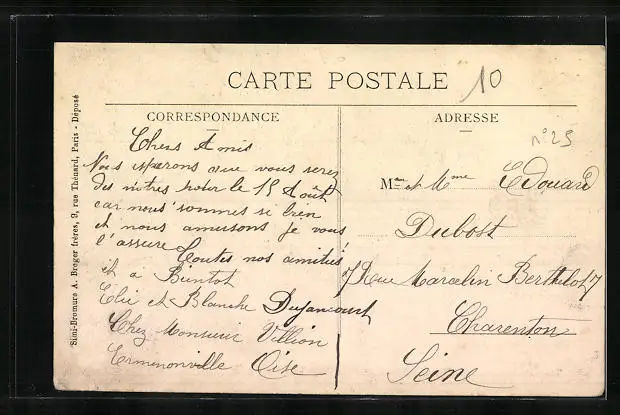 CARTE POSTALE
10
CORRESPONDANCE
Chers Amis
Nous esperons que vous serez
des nôtres pour le 15 Août
car nous sommes si bien
et nous amusons je vous
l'assure Toutes nos amitiés
et a Bientot
Elie et Blanche Dujancourt
Chez Monsieur Villion
Ermenonville Oise
ADRESSE
n° 25
Mr et Mme Edouard
Dubost
7 Rue Marcelin Berthelot 7
Charenton
Seine
Simi-Bromure A. Breger frères, 9, rue Thénard, Paris - Déposé